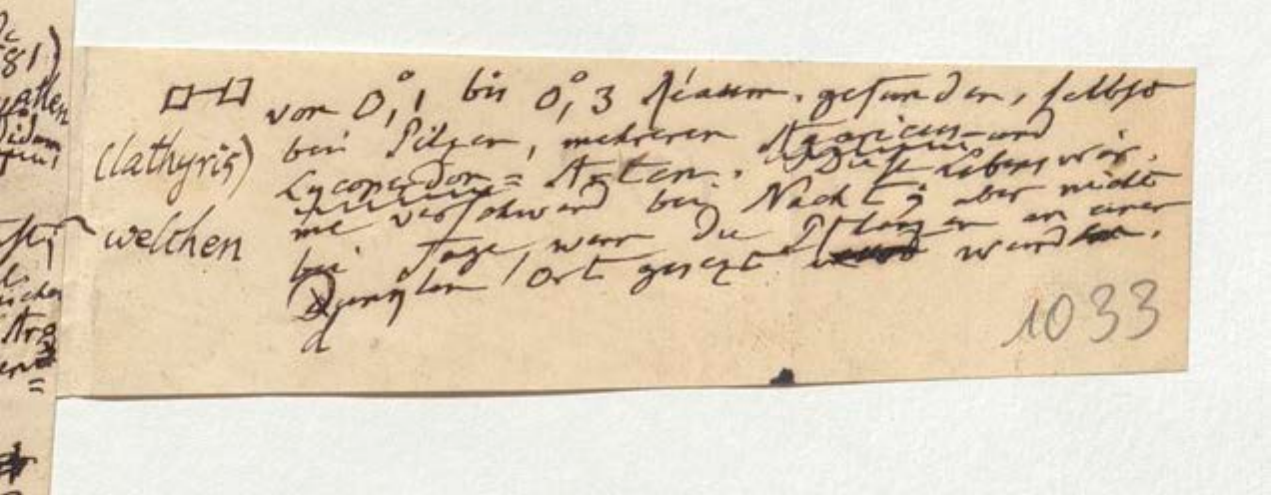 von 0°,1 bis 0°,3 Réaum. gefunden, selbst
(lathyris) bei Pilzen, mehreren Agaricus- und
Lycoperdon=Arten. Diese Lebenswär-
welchen me verschwand bei Nacht, aber nicht
bei Tage, wenn die Pflanzen an einen
dunklen Ort gesezt wurden.
d
1033